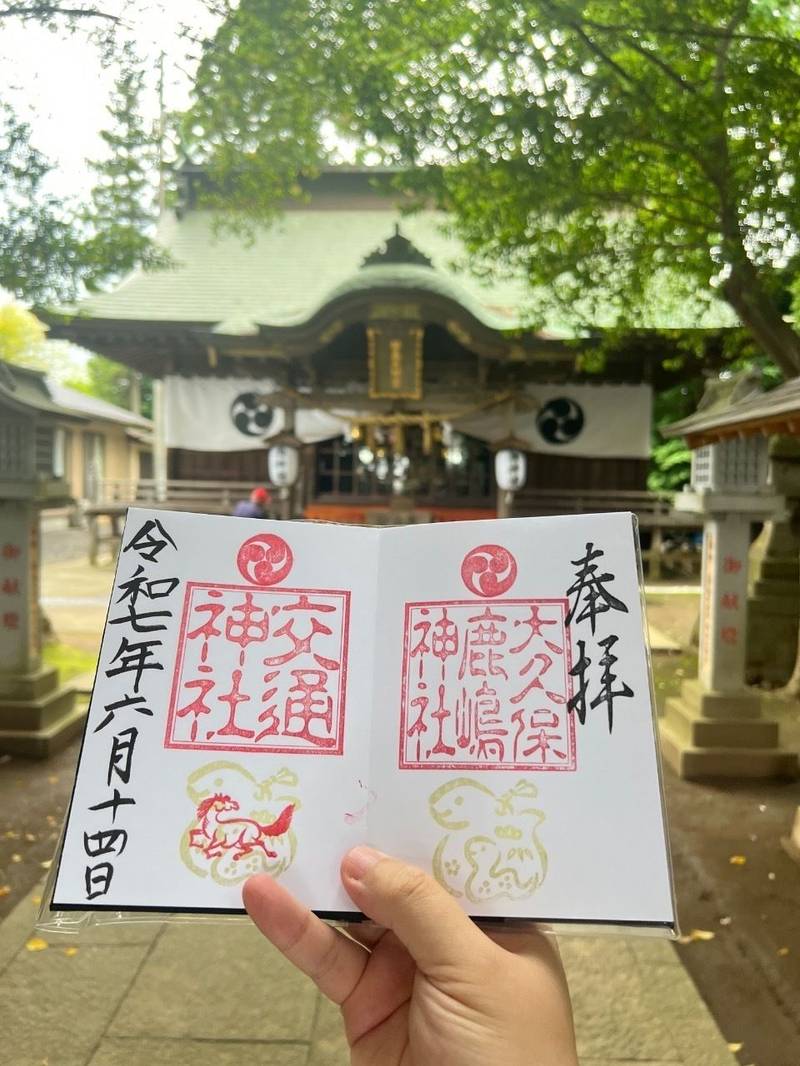 奉拝
大久保
鹿嶋
神社
交通
神社
令和七年六月十四日
御献燈
御献燈